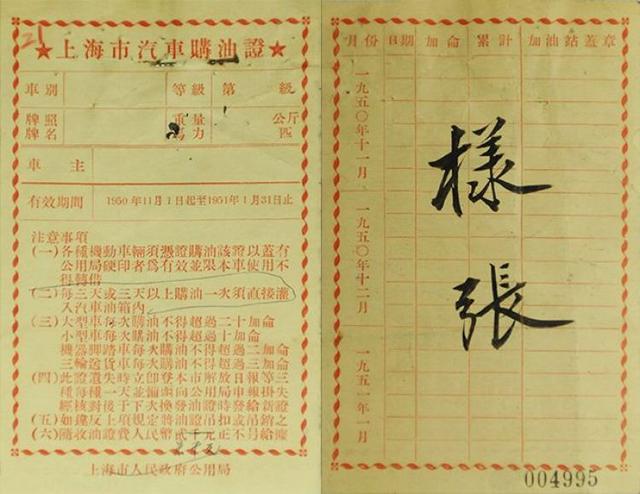 21
★上海市汽車購油證★
車別 等級 第 級
牌照 重量 公斤
牌名 馬力 匹
車主
有效期間 1950年11月1日起至1951年1月31日止
注意事項
(一)各種機動車輛須憑證購油該證以蓋有
公用局硬印者爲有效並限本車使用不
得轉借
(二)每三天或三天以上購油一次須直接灌
入汽車油箱內
(三)大型車每次購油不得超過二十加侖
小型車每次購油不得超過十加侖
機器脚踏車每次購油不得超過二加侖
三輪送貨車每次購油不得超過三加侖
(四)此證遺失時立卽登本市解放日報等三
種每種一天並備函向公用局車務掛失
經核對後于下次換發油證時發給新證
(五)如違反上項規定將油證吊扣或吊銷之
(六)隨收油證費人民幣貳千元正不另給據
上海市人民政府公用局
月份 日期 加侖 累計 加油站蓋章
一九五〇年十一月
一九五〇年十二月
一九五一年一月
樣
張
004995